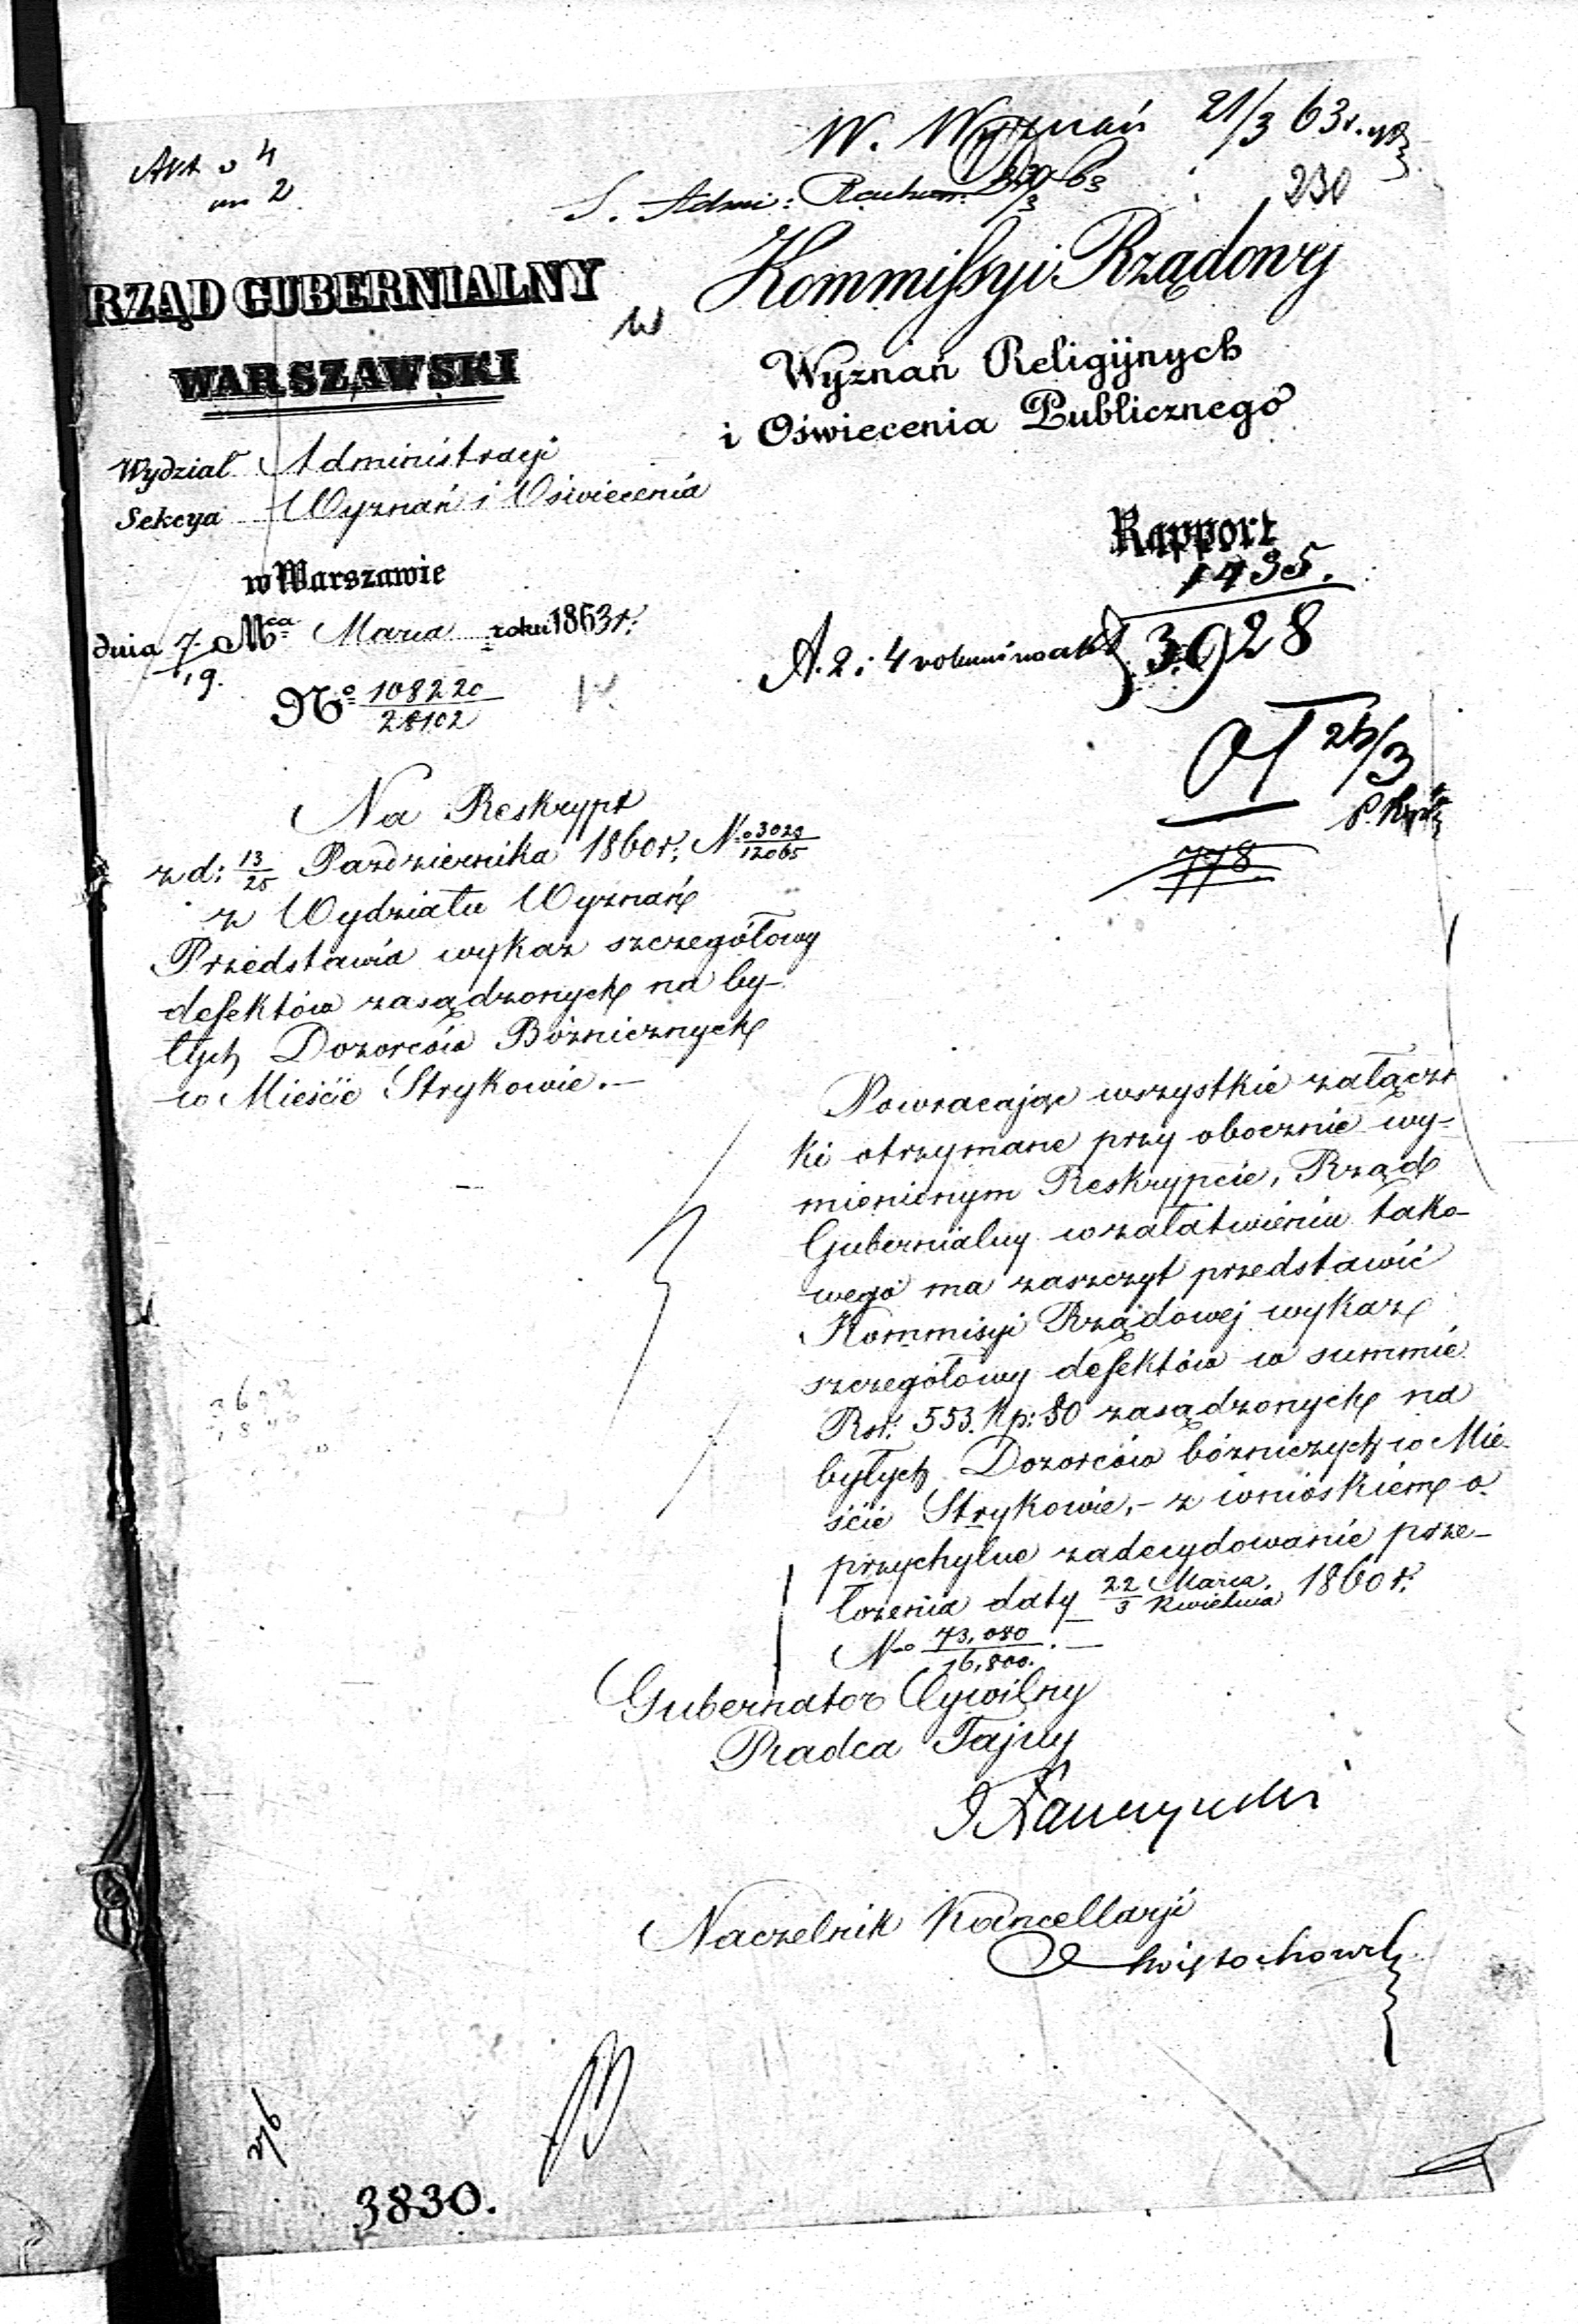 W. Wyznań 21/3 63 r.
230
RZĄD GUBERNIALNY
WARSZAWSKI
Wydział Administracyi
Sekcya Wyznań i Oświecenia
w Warszawie
dnia 7/19 Mca Marca roku 1863 r.
No 108220/28102
Kommissyi Rządowej
Wyznań Religijnych
i Oświecenia Publicznego
Rapport
1435.
3928
778
Na Reskrypt
z d: 13/25 Pazdziernika 1860 r: No 3029/12065
z Wydziału Wyznań
Przedstawia wykaz szczegółowy
defektów zasądzonych na by-
łych Dozorców Bóżnicznych
w Mieście Strykowie.—
Powracając wszystkie załącz-
ki otrzymane przy obocznie wy-
mienionym Reskrypcie, Rząd
Gubernialny w załatwieniu tako-
wego ma zaszczyt przedstawić
Kommisyi Rządowej wykaz
szczegółowy defektów w summie
Rsr: 553. Kp: 80 zasądzonych na
byłych Dozorców bóżniczych w Mie-
ście Strykowie,- z wnioskiem o
przychylne zadecydowanie prze-
łożenia daty 22 Marca/3 Kwietnia 1860 r.
No 73,080/16,800.—
Gubernator Cywilny
Radca Tajny
Naczelnik Kancellaryi
3830.